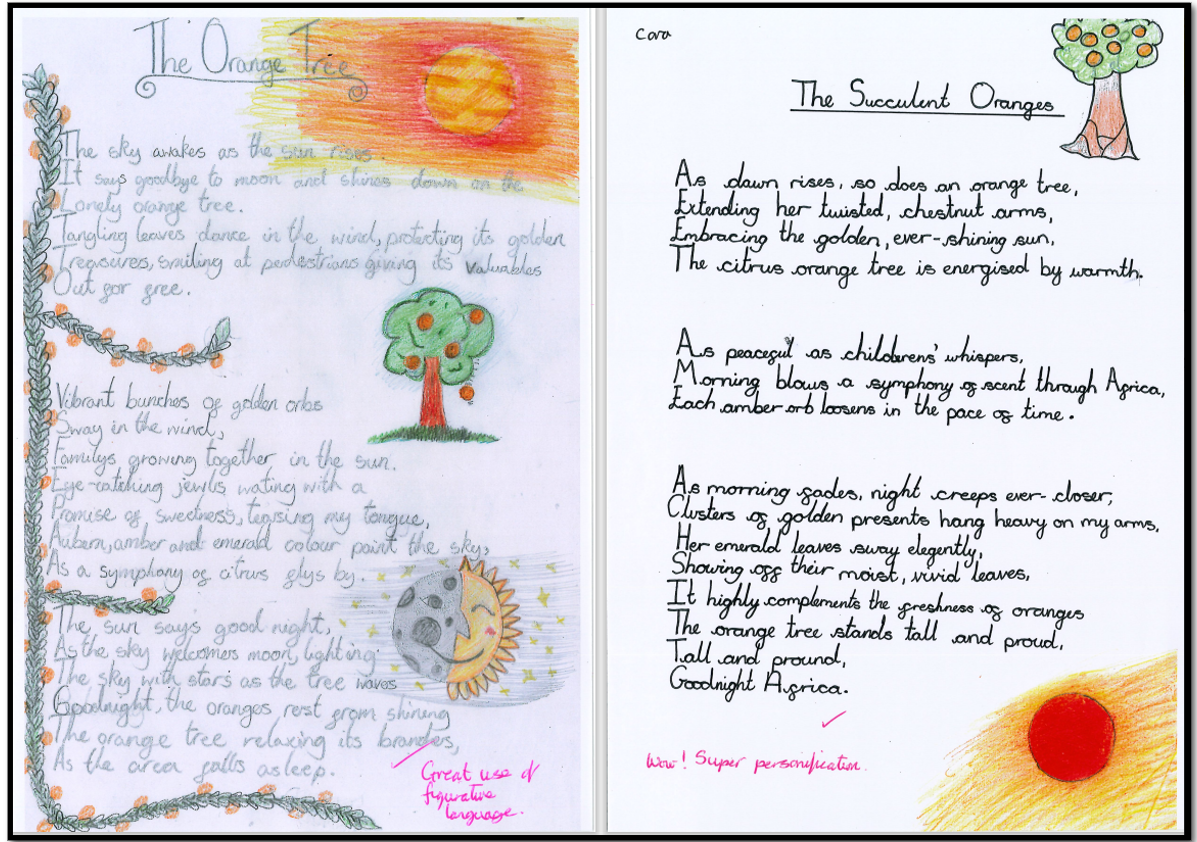 The Orange Tree
The sky awakes as the sun rises.
It says goodbye to moon and shines down on the
Lonely orange tree.
Tangling leaves dance in the wind, protecting its golden
Treasures, smiling at pedestrians giving its valuables
Out for free.
Vibrant bunches of golden orbs
Sway in the wind,
Familys growing together in the sun.
Eye-catching jewls wating with a
Promise of sweetness, teasing my tongue,
Auburn, amber and emerald colour paint the sky,
As a symphony of citrus flys by.
The sun say's good night,
As the sky welcomes moon, lighting
The sky with stars as the tree waves
Goodnight, the oranges rest from shining
The orange tree relaxing its branches,
As the area falls asleep.
Great use of
figurative
language.
Cara
The Succulent Oranges
As dawn rises, so does an orange tree,
Extending her twisted, chestnut arms,
Embracing the golden, ever-shining sun,
The citrus orange tree is energised by warmth.
As peaceful as childerens' whispers,
Morning blows a symphony of scent through Africa,
Each amber orb loosens in the pace of time.
As morning fades, night creeps ever-closer,
Clusters of golden presents hang heavy on my arms,
Her emerald leaves sway elegently,
Showing off their moist, vivid leaves,
It highly complements the freshness of oranges
The orange tree stands tall and proud,
Tall and pround,
Goodnight Africa.
Wow! Super personification.